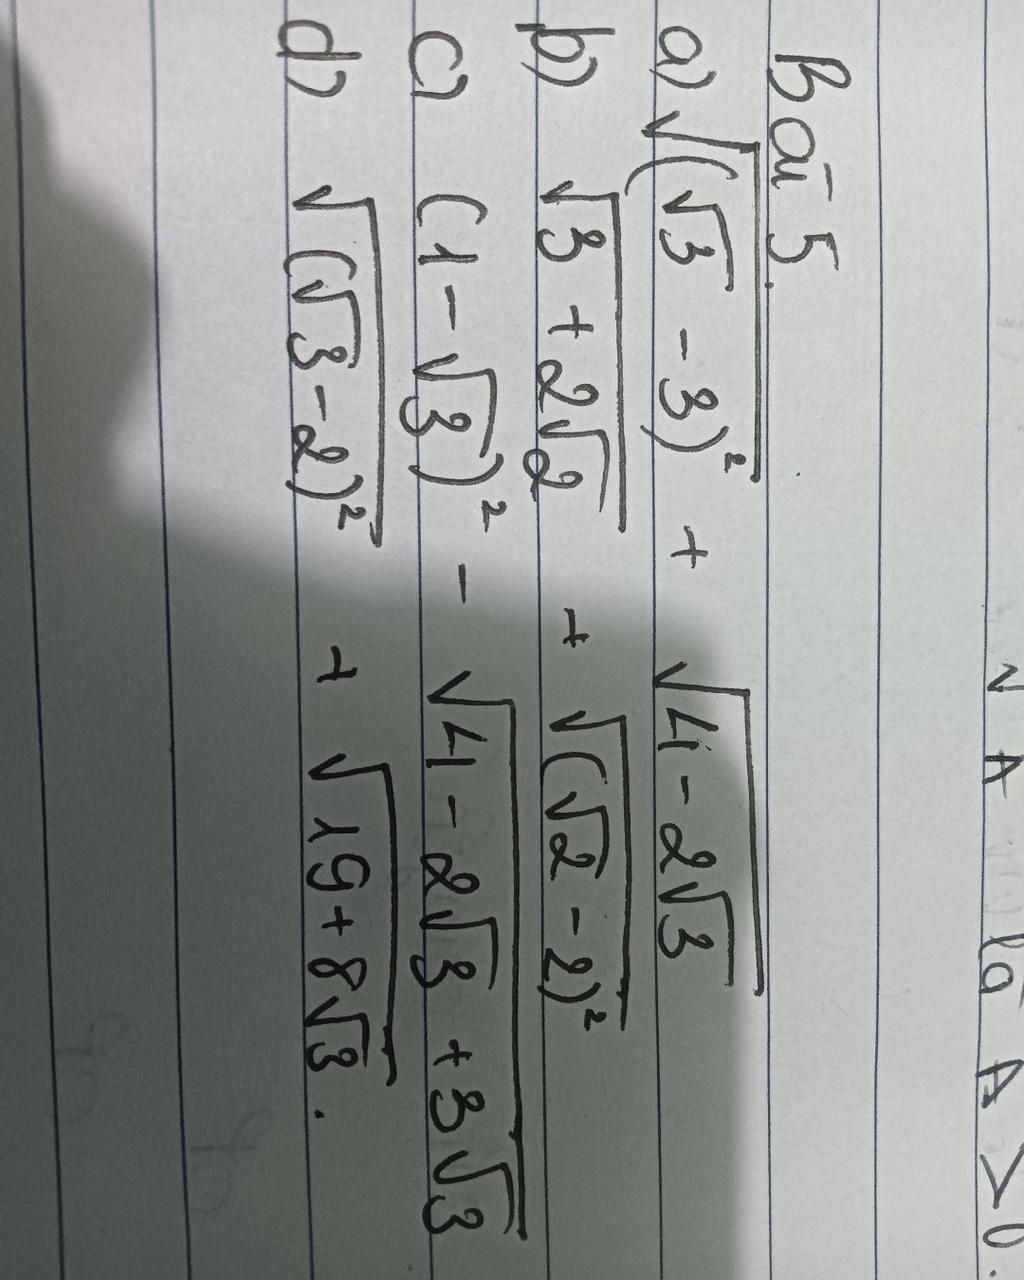 √A là A ≥ 0.
Bài 5.
a) √((√3 - 3)²) + √(4 - 2√3)
b) √(3 + 2√2) + √((√2 - 2)²)
c) (1 - √3)² - √(4 - 2√3 + 3√3)
d) √((√3 - 2)²) + √(19 + 8√3).